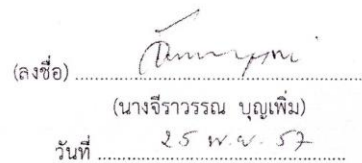 (ลงชื่อ) ..........................................
(นางจีราวรรณ บุญเพิ่ม)
วันที่ 25 พ.ย. 57